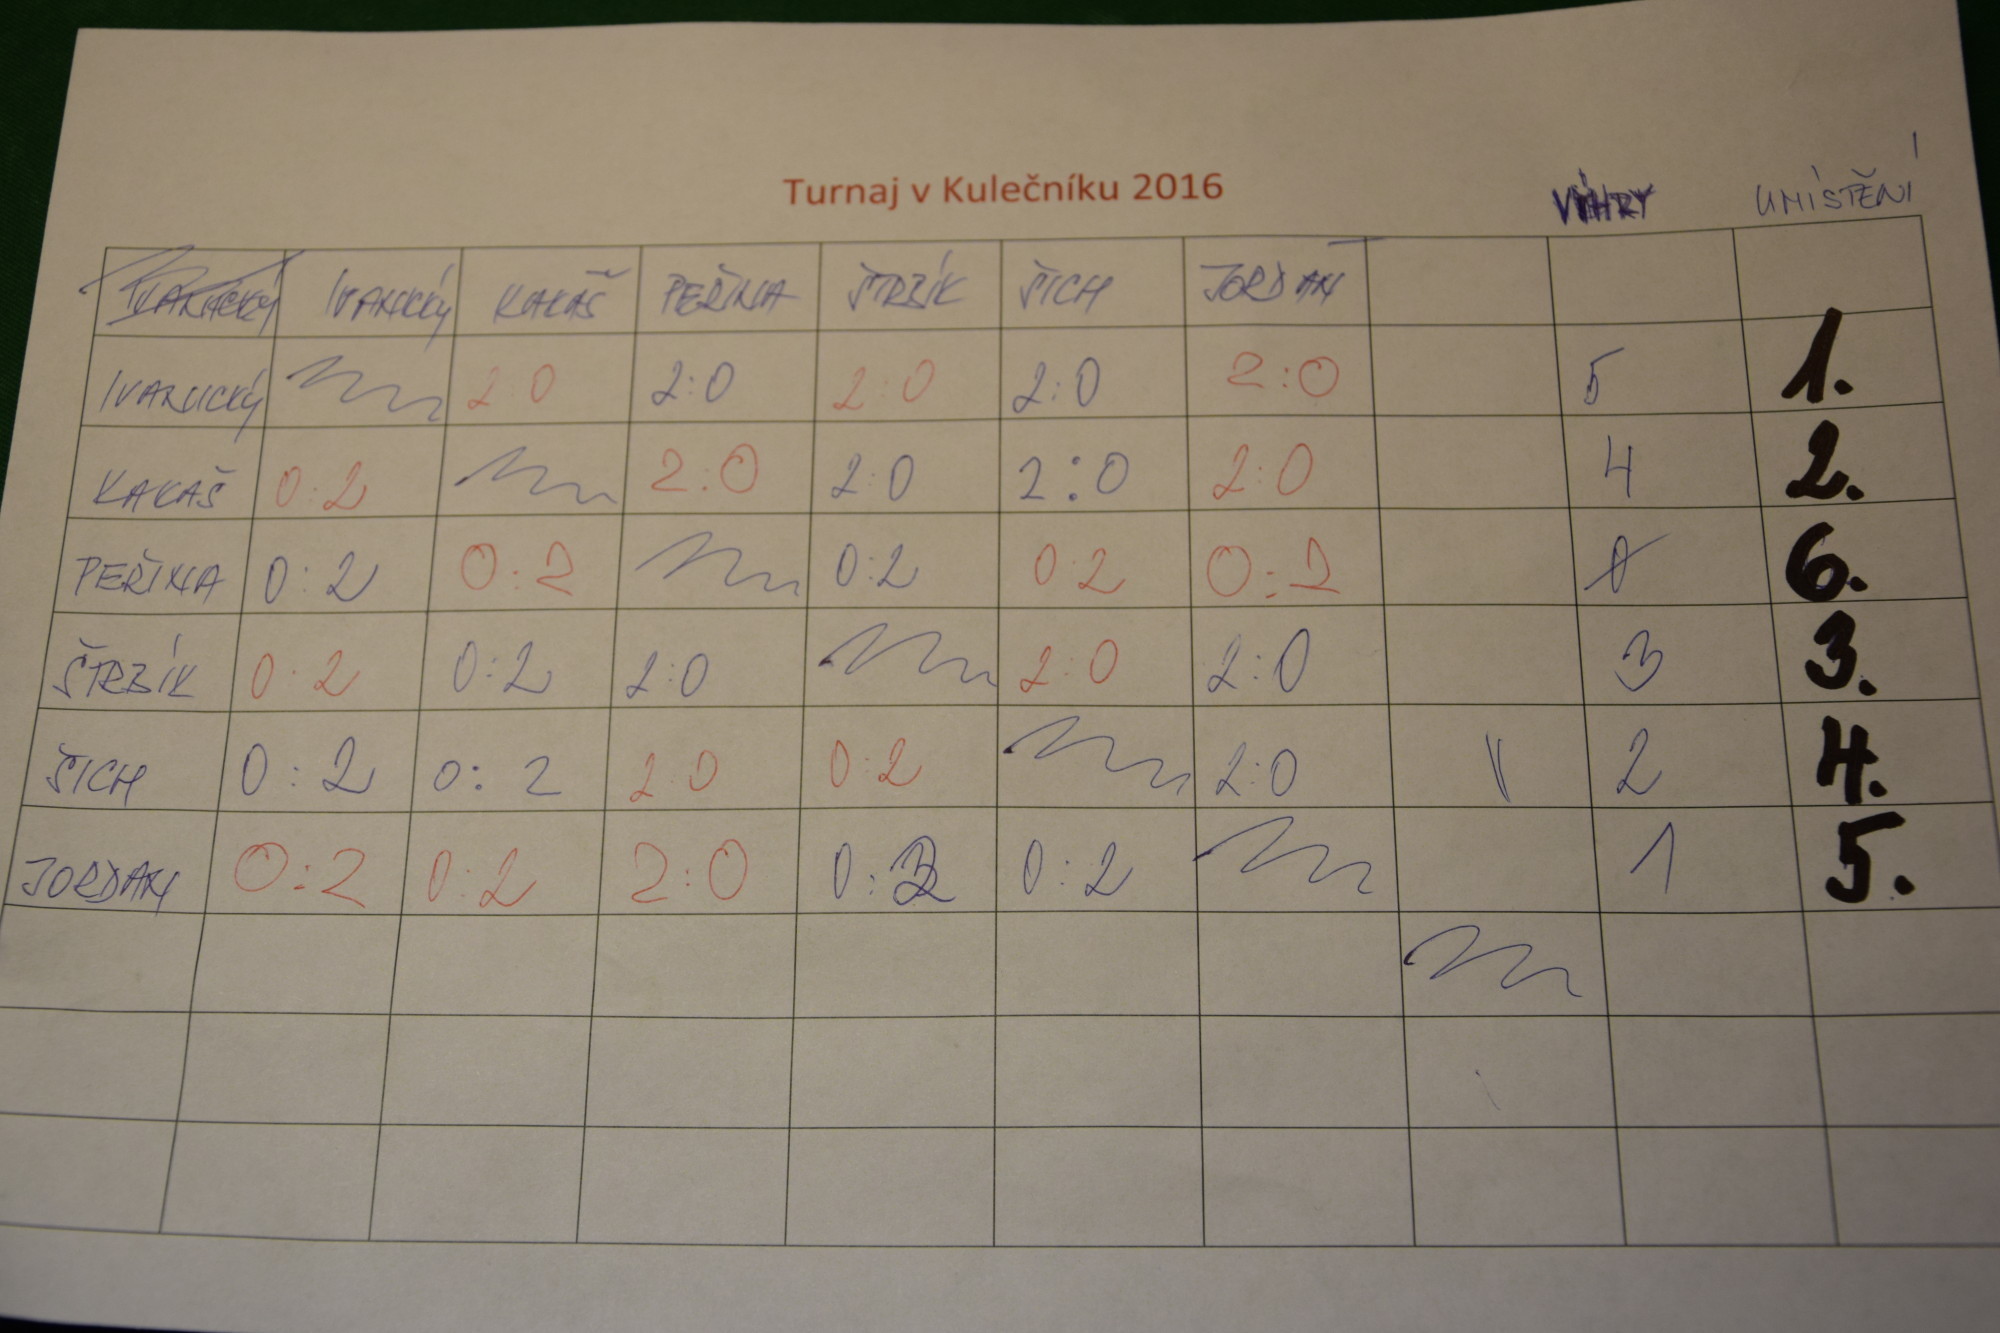 Turnaj v Kulečníku 2016
VÝHRY UMÍSTĚNÍ
IVANICKÝ IVANICKÝ KAKAŠ PEŘINA ŠTRBÍK ŠICH JORDAN
IVANICKÝ 2 0 2:0 2:0 2:0 2:0 5 1.
KAKAŠ 0:2 2:0 2:0 2:0 2:0 4 2.
PEŘINA 0:2 0:2 0:2 0 2 0:2 0 6.
ŠTRBÍK 0:2 0:2 2:0 2:0 2:0 3 3.
ŠICH 0:2 0:2 2:0 0:2 2:0 2 4.
JORDAN 0:2 0:2 2:0 0:2 0:2 1 5.